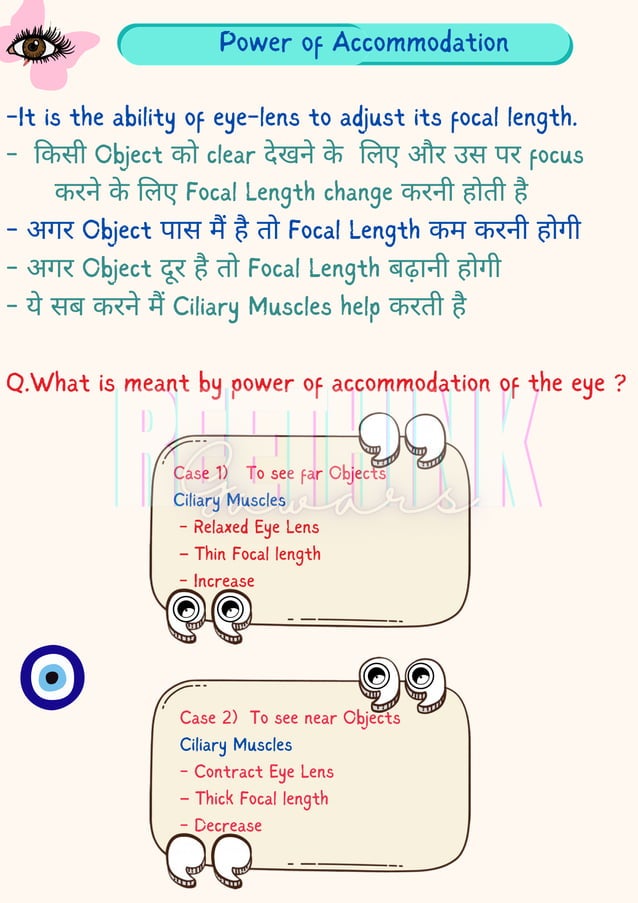 Power of Accommodation
-It is the ability of eye-lens to adjust its focal length.
- किसी Object को clear देखने के लिए और उस पर focus
करने के लिए Focal Length change करनी होती है
- अगर Object पास मैं है तो Focal Length कम करनी होगी
- अगर Object दूर है तो Focal Length बढ़ानी होगी
- ये सब करने मैं Ciliary Muscles help करती है
Q.What is meant by power of accommodation of the eye ?
Case 1) To see far Objects
Ciliary Muscles
- Relaxed Eye Lens
- Thin Focal length
- Increase
Case 2) To see near Objects
Ciliary Muscles
- Contract Eye Lens
- Thick Focal length
- Decrease